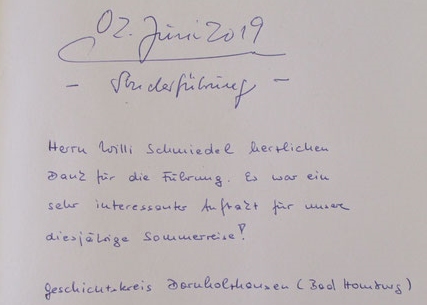 02. Juni 2019
- Sonderführung -
Herrn Willi Schmiedel herzlichen
Dank für die Führung. Es war ein
sehr interessanter Auftakt für unsere
diesjährige Sommerreise!
Geschichtskreis Dornholzhausen (Bad Homburg)